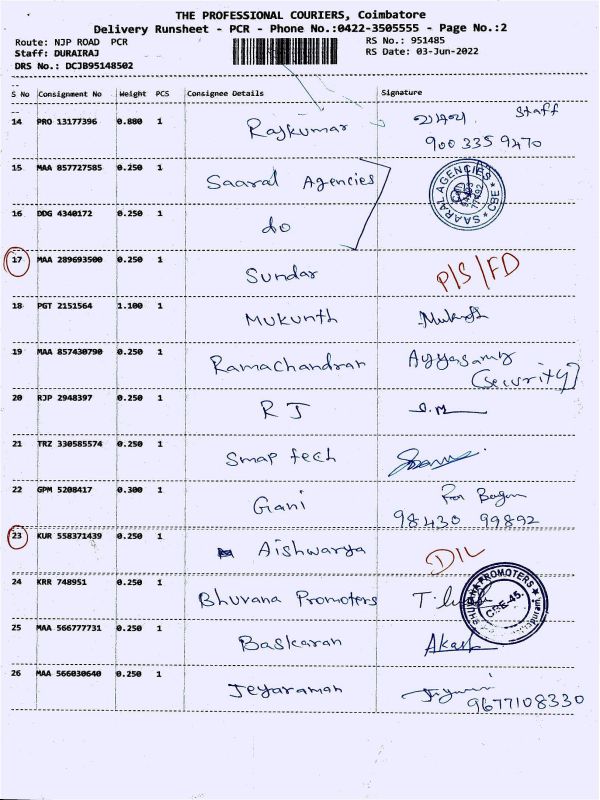 THE PROFESSIONAL COURIERS, Coimbatore
Delivery Runsheet - PCR - Phone No.:0422-3505555 - Page No.:2
Route: NJP ROAD PCR
RS No.: 951485
Staff: DURAIRAJ
RS Date: 03-Jun-2022
DRS No.: DCJB95148502
S No Consignment No Weight PCS Consignee Details Signature
14 PRO 13177396 0.880 1 Rajkumar Staff
900 335 9470
15 MAA 857727585 0.250 1 Saaral Agencies SAARAL AGENCIES CBE
16 DDG 4340172 0.250 1 do
17 MAA 289693500 0.250 1 Sundar P/S/FD
18 PGT 2151564 1.100 1 Mukunth Mukunth
19 MAA 857430790 0.250 1 Ramachandran Ayyasamy
(Security)
20 RJP 2948397 0.250 1 R J
21 TRZ 330585574 0.250 1 Smap tech
22 GPM 5208417 0.300 1 Gani
98430 99892
23 KUR 558371439 0.250 1 Aishwarya D/L
24 KRR 748951 0.250 1 Bhuvana Promoters BHUVANA PROMOTERS CBE-45.
25 MAA 566777731 0.250 1 Baskaran Akash
26 MAA 566030640 0.250 1 Jeyaraman
9677108330